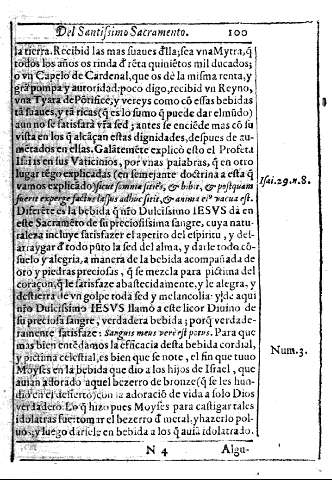 Del Santissimo Sacramento. 100
la tierra. Recibid las mas suaues d̃lla; sea vna Mytra, q̃
todos los años os rinda d̃ rẽta quiniẽtos mil ducados;
o vn Capelo de Cardenal, que os dè la misma renta, y
grã pompa y autoridad: poco digo, recibid vn Reyno,
vna Tyara de Põtifice, y vereys como cõ essas bebidas
tã suaues, y tã ricas (q̃ es lo sumo q̃ puede dar el mũdo)
aun no se satisfarà vr̃a sed; antes se enciẽde mas cõ su
vista en los q̃ alcãçan estas dignidades, despues de zu-
metados en ellas. Galãtemẽte explicò esto el Profeta
Isaìis en sus Vaticinios, por vnas palabras, q̃ en otro
lugar tẽgo explicadas (en semejante doctrina a esta q̃
vamos explicado) sicut somniat sitiẽs, & bibit, & postquam
fuerit experge factus lassus adhuc sitit, & anima eiº vacua est.
Diferẽte es la bebida q̃ nr̃o Dulcissimo IESVS dà en
este Sacramẽto de su preciosissima sangre, cuya natu-
raleza incluye satisfazer el apetito del espiritu, y des-
arraygar d̃ todo pũto la sed del alma, y darle todo cõ-
suelo y alegria, a manera de la bebida acompañada de
oro y piedras preciosas, q̃ se mezcla para pictima del
coraçon, q̃ le satisfaze abastecidamente, y le alegra, y
destierra de vn golpe toda sed y melancolia: y d̃ aqui
nr̃o Dulcissimo IESVS llamò a este licor Diuino de
su preciosa sangre, verdadera bebida; porq̃ verdade-
ramente satisfaze: Sanguis meus verè est potus. Para que
mas bien entẽdamos la efficacia desta bebida cordial,
y pictima celestial, es bien que se note, el fin que tuuo
Moysen en la bebida que dio a los hijos de Israel, que
auian adorado aquel bezerro de bronze (q̃ se les hun-
dio en el desierto) con la adoraciõ de vida a solo Dios
verdadero. Lo q̃ hizo pues Moyses para castigar tales
idolatras fue, tomar el bezerro d̃ metal, y hazerlo pol-
uos, y luego darsele en bebida a los q̃ auiã idolatrado.
N 4 Algu-
Isai. 29. n. 8.
Num. 3.